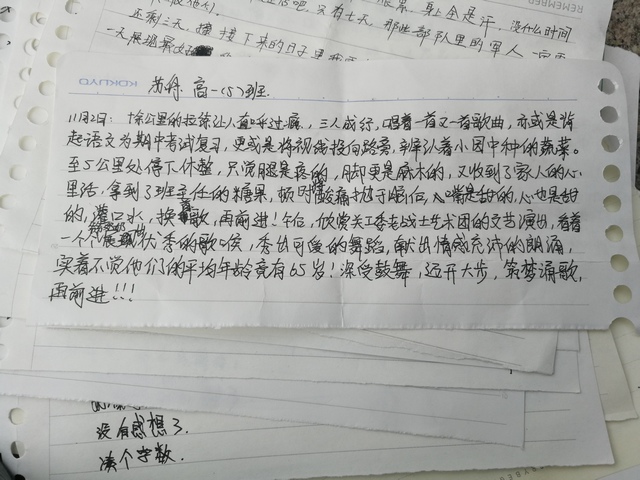 REMEMBER
还剩三天，接下来的日子是
KOKUYO
高一(5)班.
11月2日: 十余公里的拉练让人直呼过瘾，三人成行，唱着一首又一首歌曲，亦或是背
起语文为期中考试复习，更或是将视线投向路旁，辨认着小园中种的蔬菜。
至5公里处停下休整，只觉腿是疼的，脚更是麻木的，又收到了家人的心
里话，拿到了班主任的糖果，顿时酸痛抛于脑后，心嘴是甜的，心也是甜
的，灌口水，接着歌，再前进！午后，欣赏关工委老战士艺术团的文艺演出，看着
一个个展优秀的歌喉，秀出可爱的舞蹈，献出情感充沛的朗诵，
实着不觉他们的平均年龄竟有65岁！深受鼓舞，迈开大步，筑梦诵歌，
再前进！！！
没有感想了.
凑个字数.